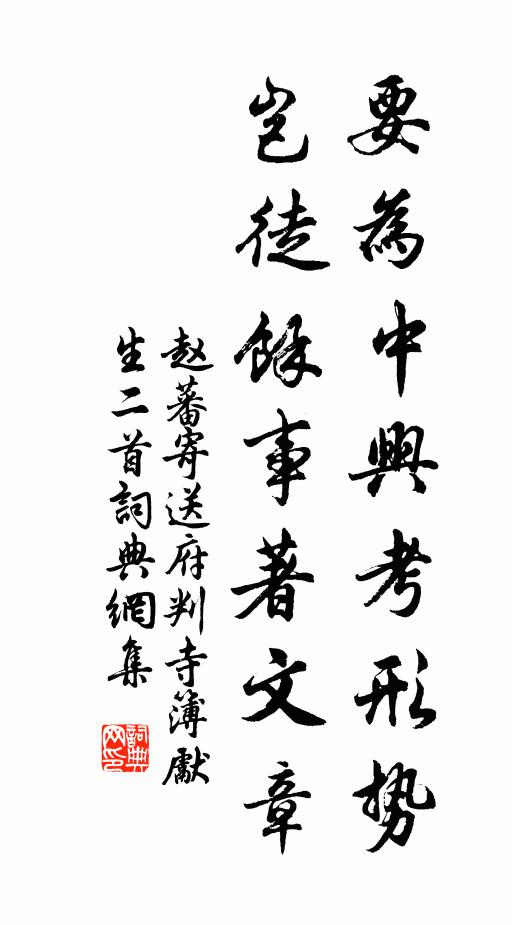 要為中興考形势
岂徒餘事著文章
赵蕃寄送府判寺簿獻
生二首詞典網集
詞典
网印